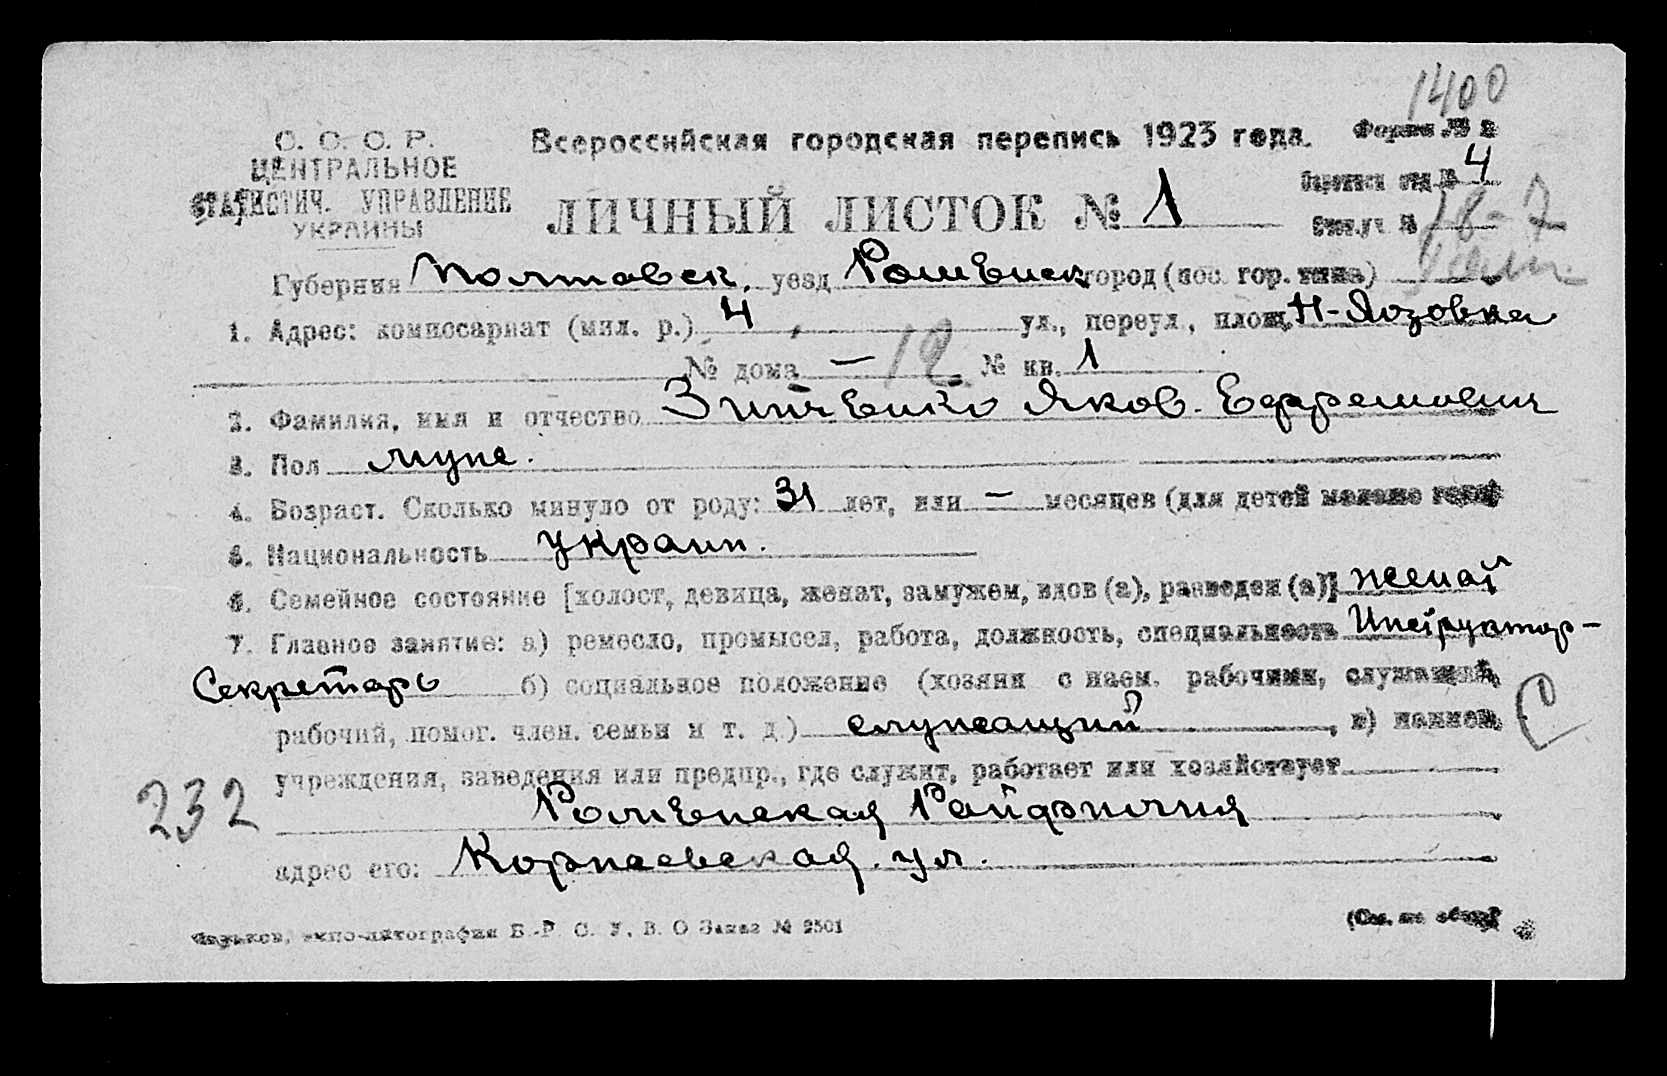 1400
С. С. С. Р.
ЦЕНТРАЛЬНОЕ
СТАТИСТИЧ. УПРАВЛЕНИЕ
УКРАИНЫ
Всероссийская городская перепись 1923 года. Форма № 2
ЛИЧНЫЙ ЛИСТОК № 1
4
18-7
Губерния Полтавск. уезд Роменск город (пос. гор. типа)
1. Адрес: комиссариат (мил. р.) 4, ул., переул., площ. Н-Лозовка
№ дома — 12 № кв. 1
2. Фамилия, имя и отчество Зинченко Яков Ефремович
3. Пол муж.
4. Возраст. Сколько минуло от роду: 31 лет, или — месяцев (для детей моложе года)
5. Национальность украин.
6. Семейное состояние [холост, девица, женат, замужем, вдов (а), разведен (а)] женат
7. Главное занятие: а) ремесло, промысел, работа, должность, специальность Инструктор-
Секретарь б) социальное положение (хозяин с наем. рабочими, служащий,
рабочий, помог. член. семьи и т. д.) служащий, в) наимен.
учреждения, заведения или предпр., где служит, работает или хозяйствует
232
Роменская
адрес его: ул.
Заказ № 2501
(См. на обор.)